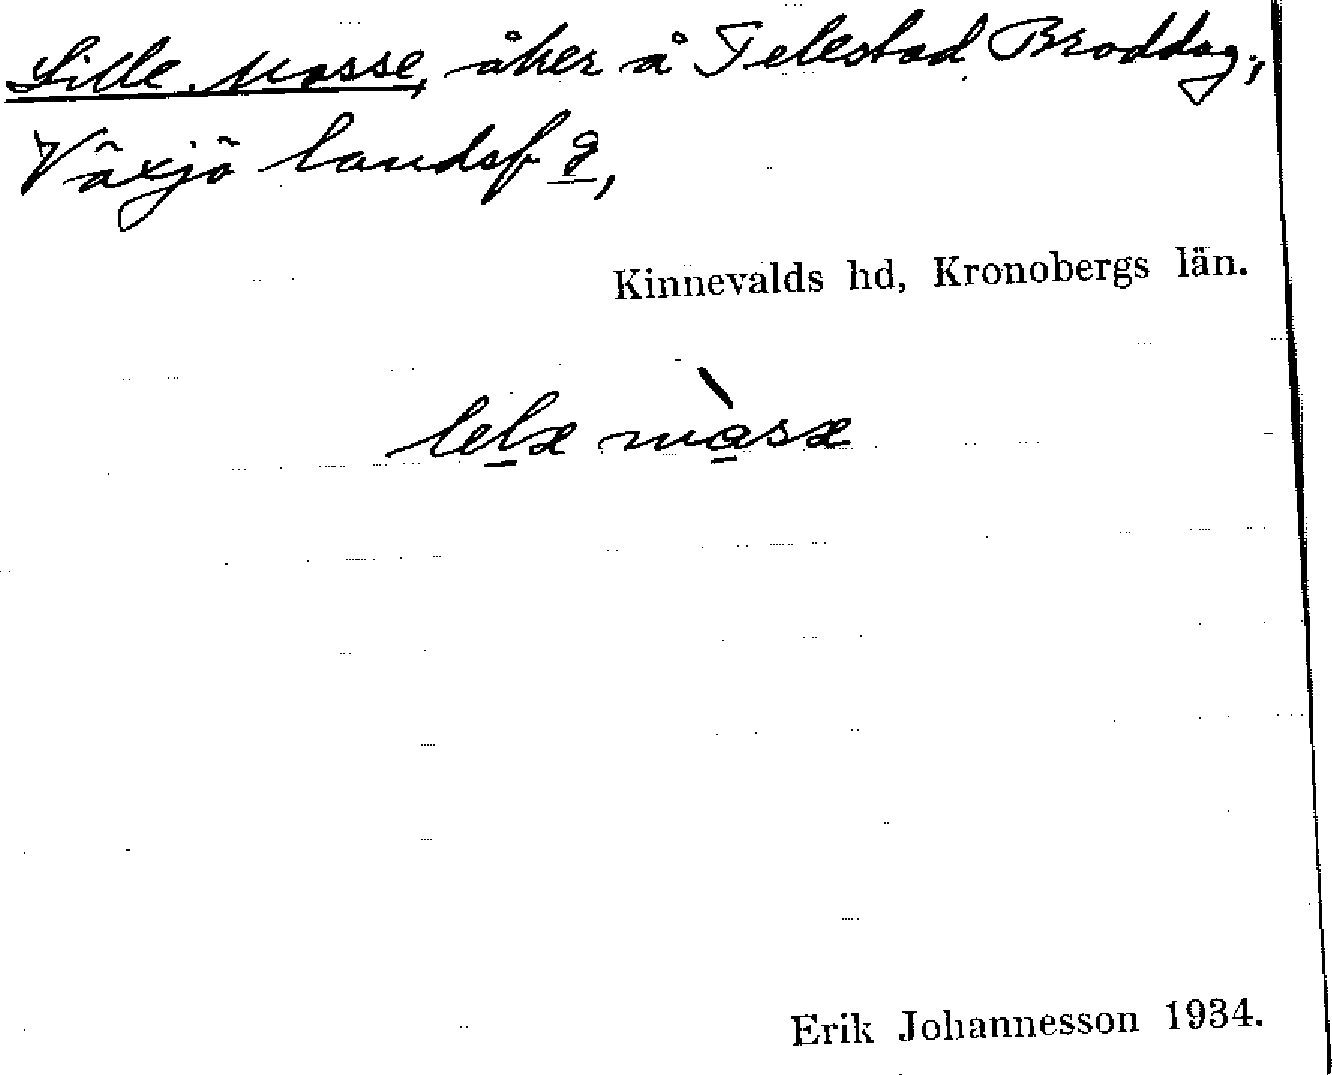 Lille Mosse, åker å Telestad Broddag.,
Växjö landsf g,
Kinnevalds hd, Kronobergs län.
lelæ màsæ
Erik Johannesson 1934.